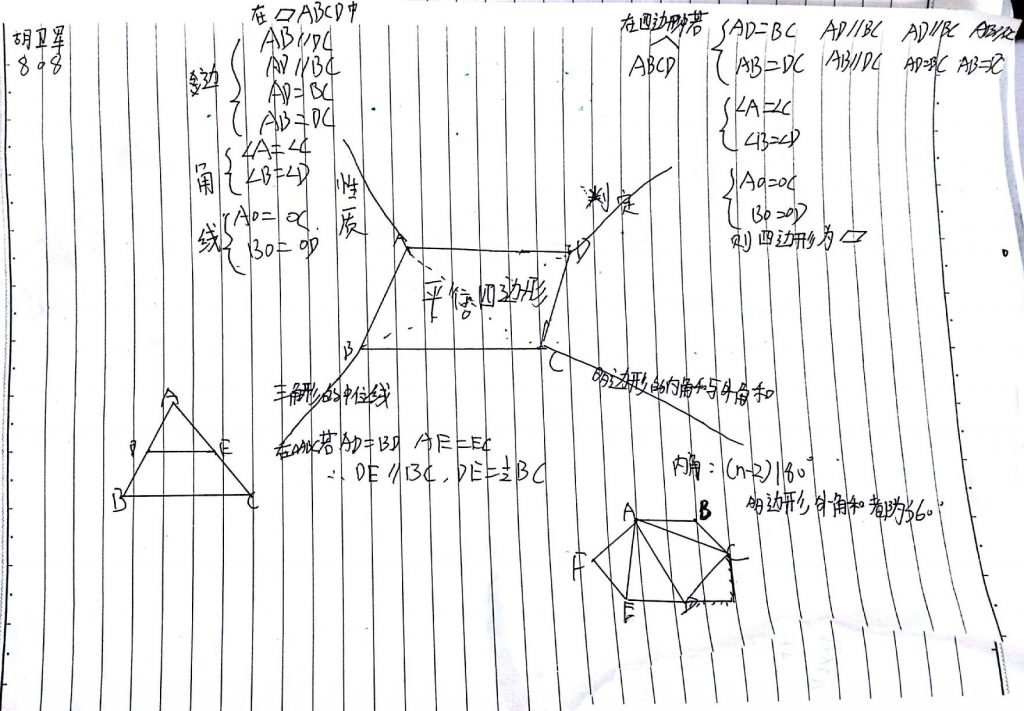 胡卫军
808
在▱ABCD中
边
AB∥DC
AD∥BC
AD=BC
AB=DC
角
∠A=∠C
∠B=∠D
线
AO=OC
BO=OD
性质
在四边形中若
ABCD
AD=BC AD∥BC AD∥BC AB∥DC
AB=DC AB∥DC AD=BC AB=DC
∠A=∠C
∠B=∠D
AO=OC
BO=OD
则四边形为▱
判定
A D
平行四边形
B C
三角形的中位线
在△ABC若AD=BD AE=EC
∴DE∥BC,DE=½BC
A
D E
B C
边形的内角和与外角和
内角:(n-2)180°
边形外角和都为360°
A B
F C
E D